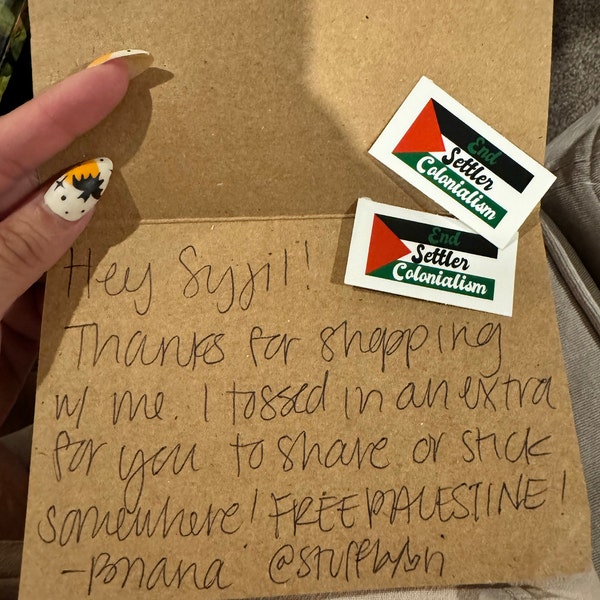 End
Settler
Colonialism
End
Settler
Colonialism
Hey
Thanks for shopping
w/ me. I tossed in an extra
for you to share or stick
somewhere! FREE PALESTINE!